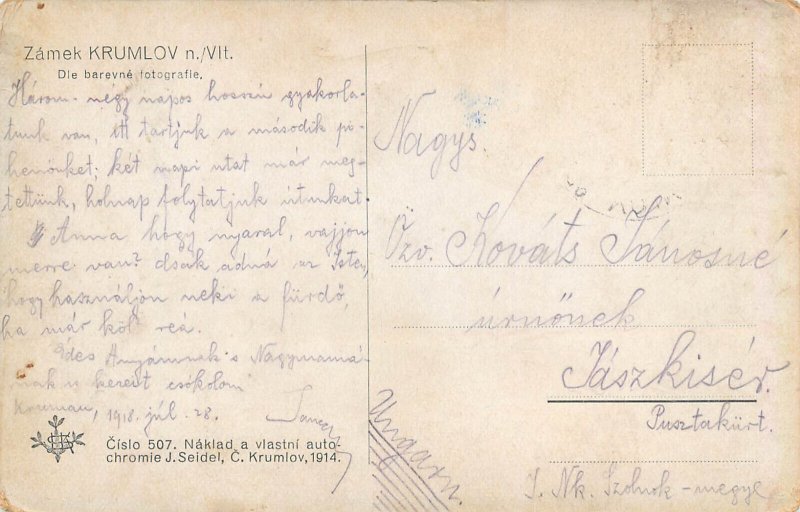 Zámek KRUMLOV n./Vlt.
Dle barevné fotografie.
Három-négy napos hosszú gyakorla-
tunk van, itt tartjuk a második pi-
henőnket; két napi utat már meg-
tettünk, holnap folytatjuk útunkat.
Anna hogy nyaral, vajjon
merre van? Csak adná az Isten,
hogy használjon neki a fürdő,
ha már költ reá.
Édes Anyámnak s Nagymamá-
nak kezeit csókolom
Krumau, 1918. júl. 28.
Číslo 507. Náklad a vlastní auto-
chromie J. Seidel, Č. Krumlov, 1914.
Nagys.
Özv. Kováts Jánosné
úrnőnek
Jászkisér.
Pusztakürt.
J. Nk. Szolnok-megye
Ungarn.